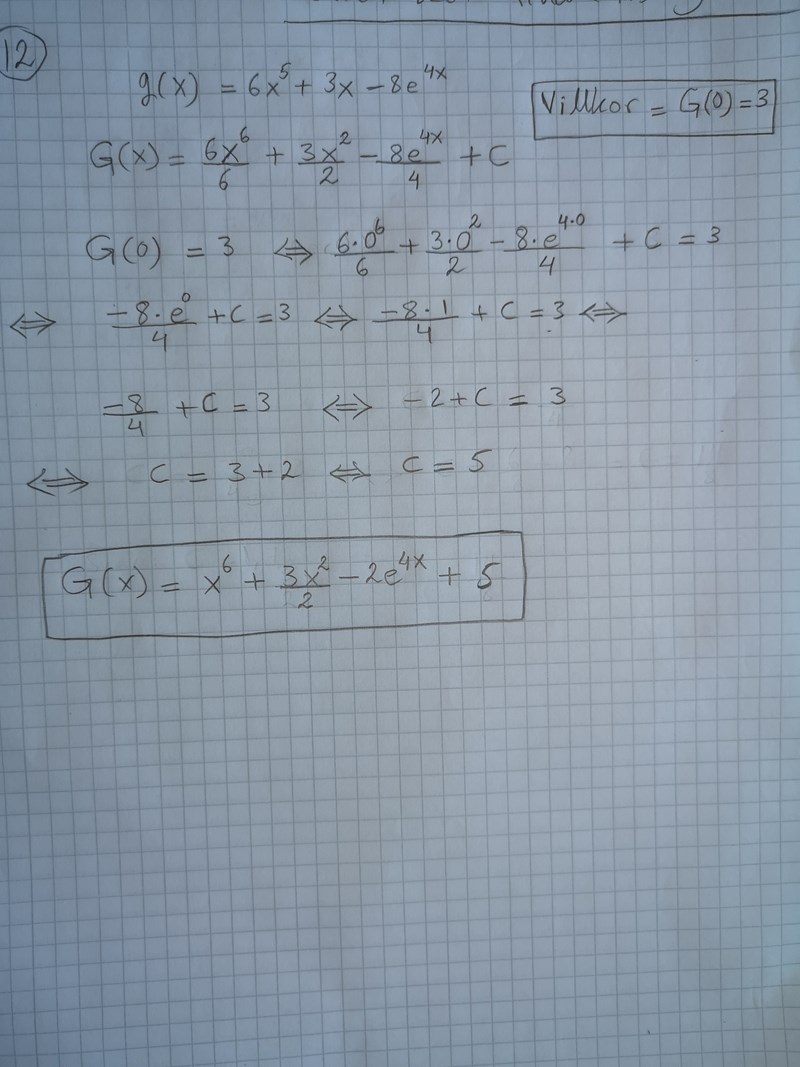 12
g(x) = 6x⁵ + 3x - 8e^{4x}
Villkor = G(0) = 3
G(x) = 6x⁶/6 + 3x²/2 - 8e^{4x}/4 + C
G(0) = 3 ⇔ 6·0⁶/6 + 3·0²/2 - 8·e^{4·0}/4 + C = 3
⇔ -8·e⁰/4 + C = 3 ⇔ -8·1/4 + C = 3 ⇔
-8/4 + C = 3 ⇔ -2 + C = 3
⇔ C = 3 + 2 ⇔ C = 5
G(x) = x⁶ + 3x²/2 - 2e^{4x} + 5